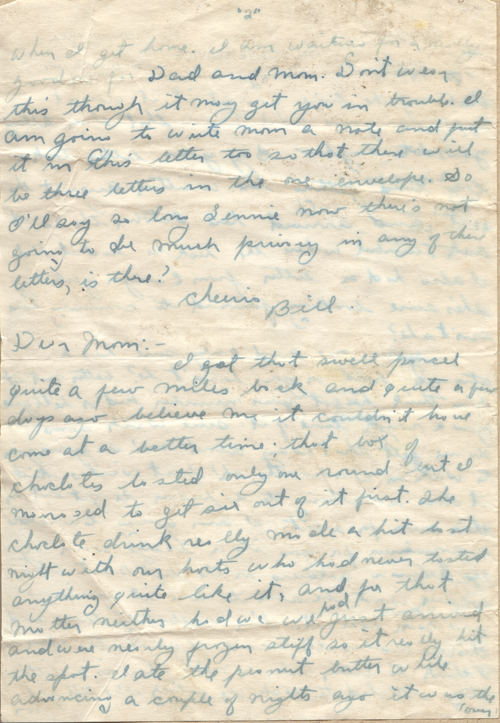 "2"
when I get home. I am waiting for a really
good for Dad and Mom. Don't wear
this though it may get you in trouble. I
am going to write Mom a note and put
it in this letter too so that there will
be three letters in the one envelope. So
I'll say so long Lennie now there's not
going to be much privacy in any of these
letters, is there?
Cheerio
Bill
Dear Mom:-
I got that swell parcel
quite a few miles back and quite a few
days ago believe me it couldn't have
come at a better time, that box of
choclotes lasted only one round but I
managed to get six out of it first. The
choclote drink really made a hit last
night with our hosts who had never tasted
anything quite like it, and for that
matter neither had we we had just arrived
and were nearly frozen stiff so it really hit
the spot. I ate the peanut butter while
advancing a couple of nights ago it was the
only